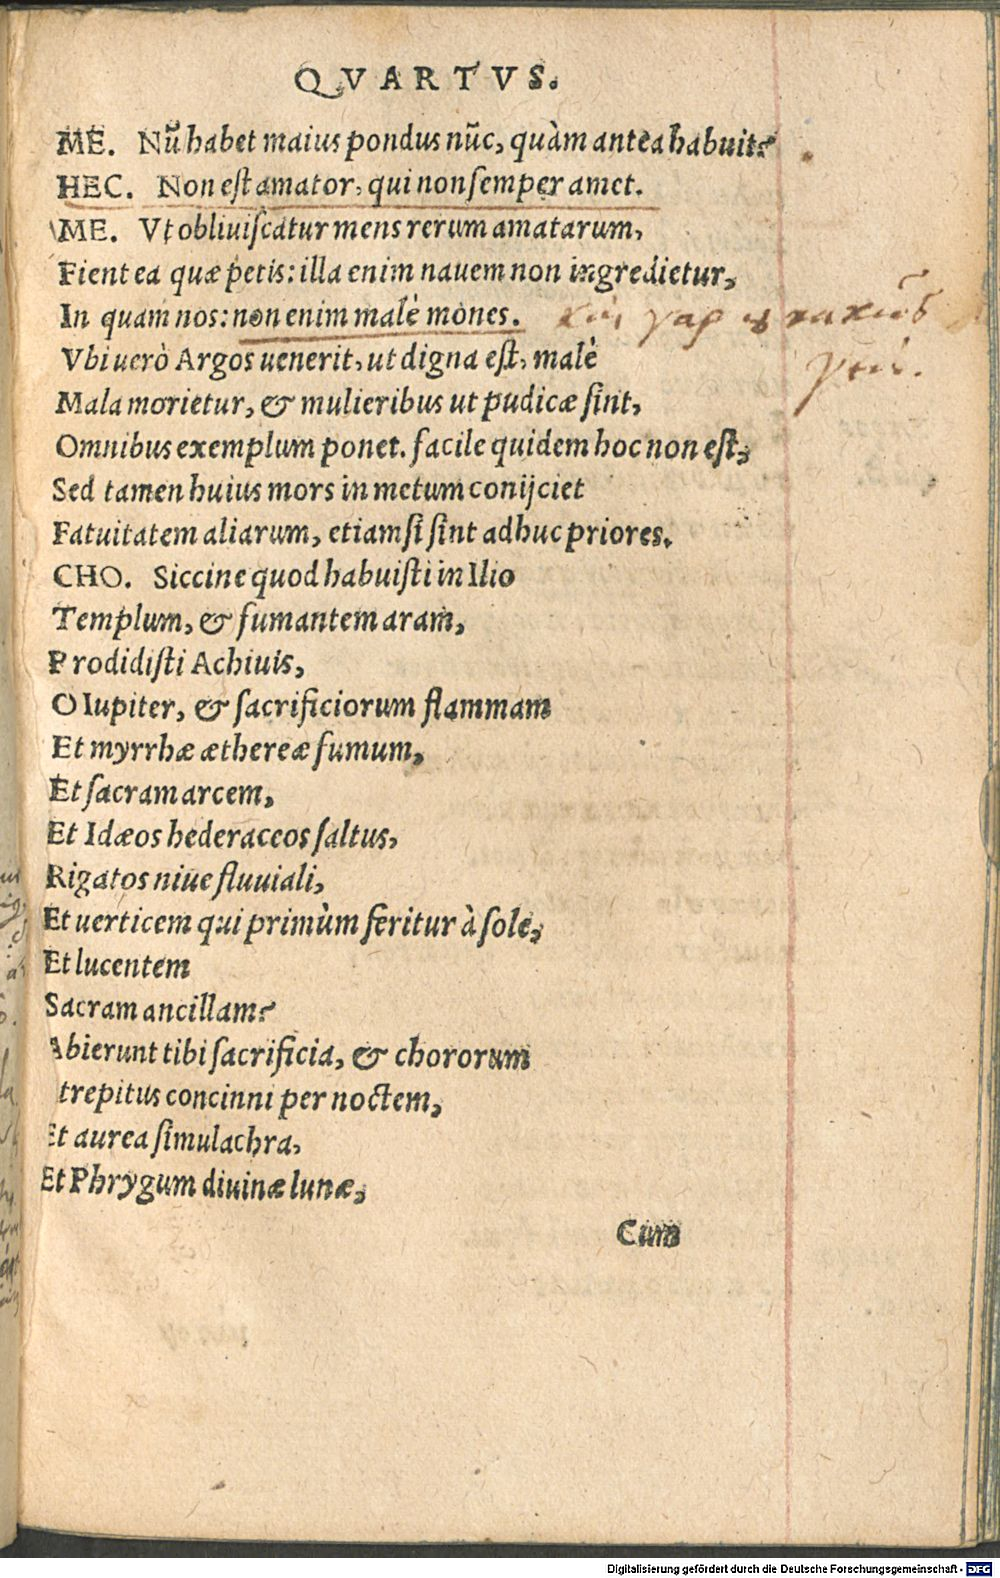 QVARTVS.
ME. Nũ habet maius pondus nũc, quàm antea habuit?
HEC. Non est amator, qui non semper amet.
ME. Vt obliuiscatur mens rerum amatarum,
Fient ea quæ petis: illa enim nauem non ingredietur,
In quam nos: non enim malè mones.
γαρ
Vbi uerò Argos uenerit, ut digna est, malè
Mala morietur, & mulieribus ut pudicæ sint,
Omnibus exemplum ponet. facile quidem hoc non est,
Sed tamen huius mors in metum conijciet
Fatuitatem aliarum, etiamsi sint adhuc priores.
CHO. Siccine quod habuisti in Ilio
Templum, & fumantem aram,
Prodidisti Achiuis,
O Iupiter, & sacrificiorum flammam
Et myrrhæ æthereæ fumum,
Et sacram arcem,
Et Idæos hederaceos saltus,
Rigatos niue fluuiali,
Et uerticem qui primùm feritur à sole,
Et lucentem
Sacram ancillam?
Abierunt tibi sacrificia, & chororum
trepitus concinni per noctem,
Et aurea simulachra,
Et Phrygum diuinæ lunæ,
Cum
Digitalisierung gefördert durch die Deutsche Forschungsgemeinschaft - DFG